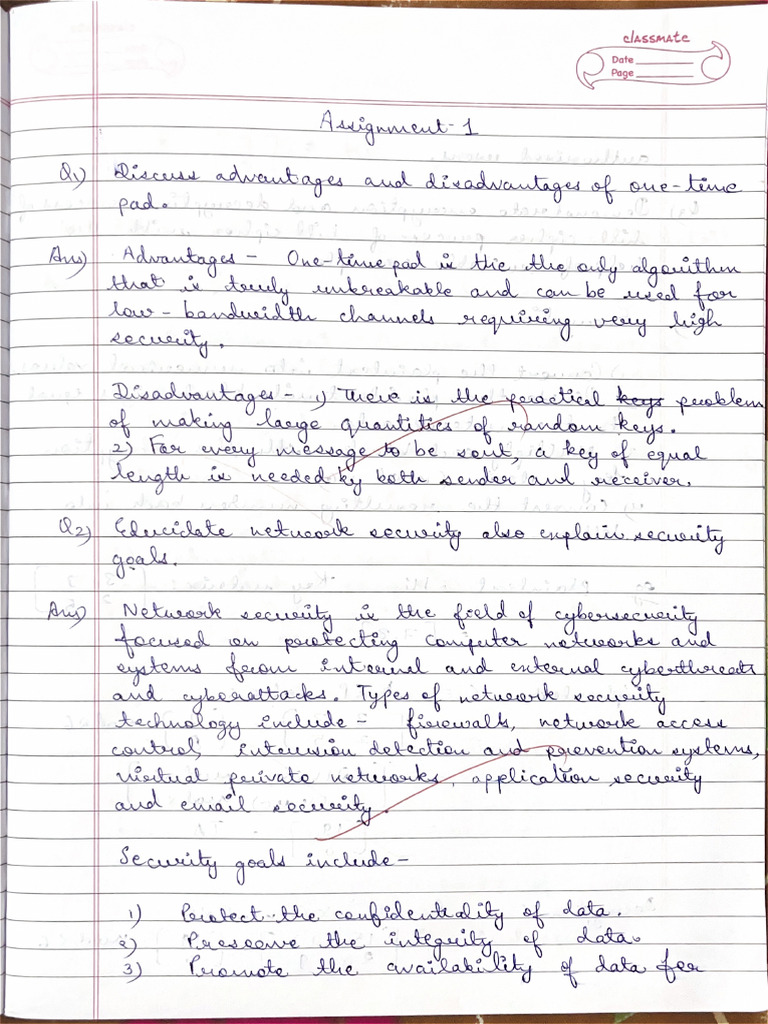 classmate
Date
Page
Assignment-1
Q1) Discuss advantages and disadvantages of one-time
pad.
Ans) Advantages - One-time pad is the the only algorithm
that is truly unbreakable and can be used for
low-bandwidth channels requiring very high
security.
Disadvantages - 1) There is the practical keys problem
of making large quantities of random keys.
2) For every message to be sent, a key of equal
length is needed by both sender and receiver.
Q2) Elucidate network security also explain security
goals.
Ans) Network security is the field of cybersecurity
focused on protecting computer networks and
systems from internal and external cyberthreats
and cyberattacks. Types of network security
technology include - firewalls, network access
control, intrusion detection and prevention systems,
virtual private networks, application security
and email security.
Security goals include -
1) Protect the confidentiality of data.
2) Preserve the integrity of data.
3) Promote the availability of data for